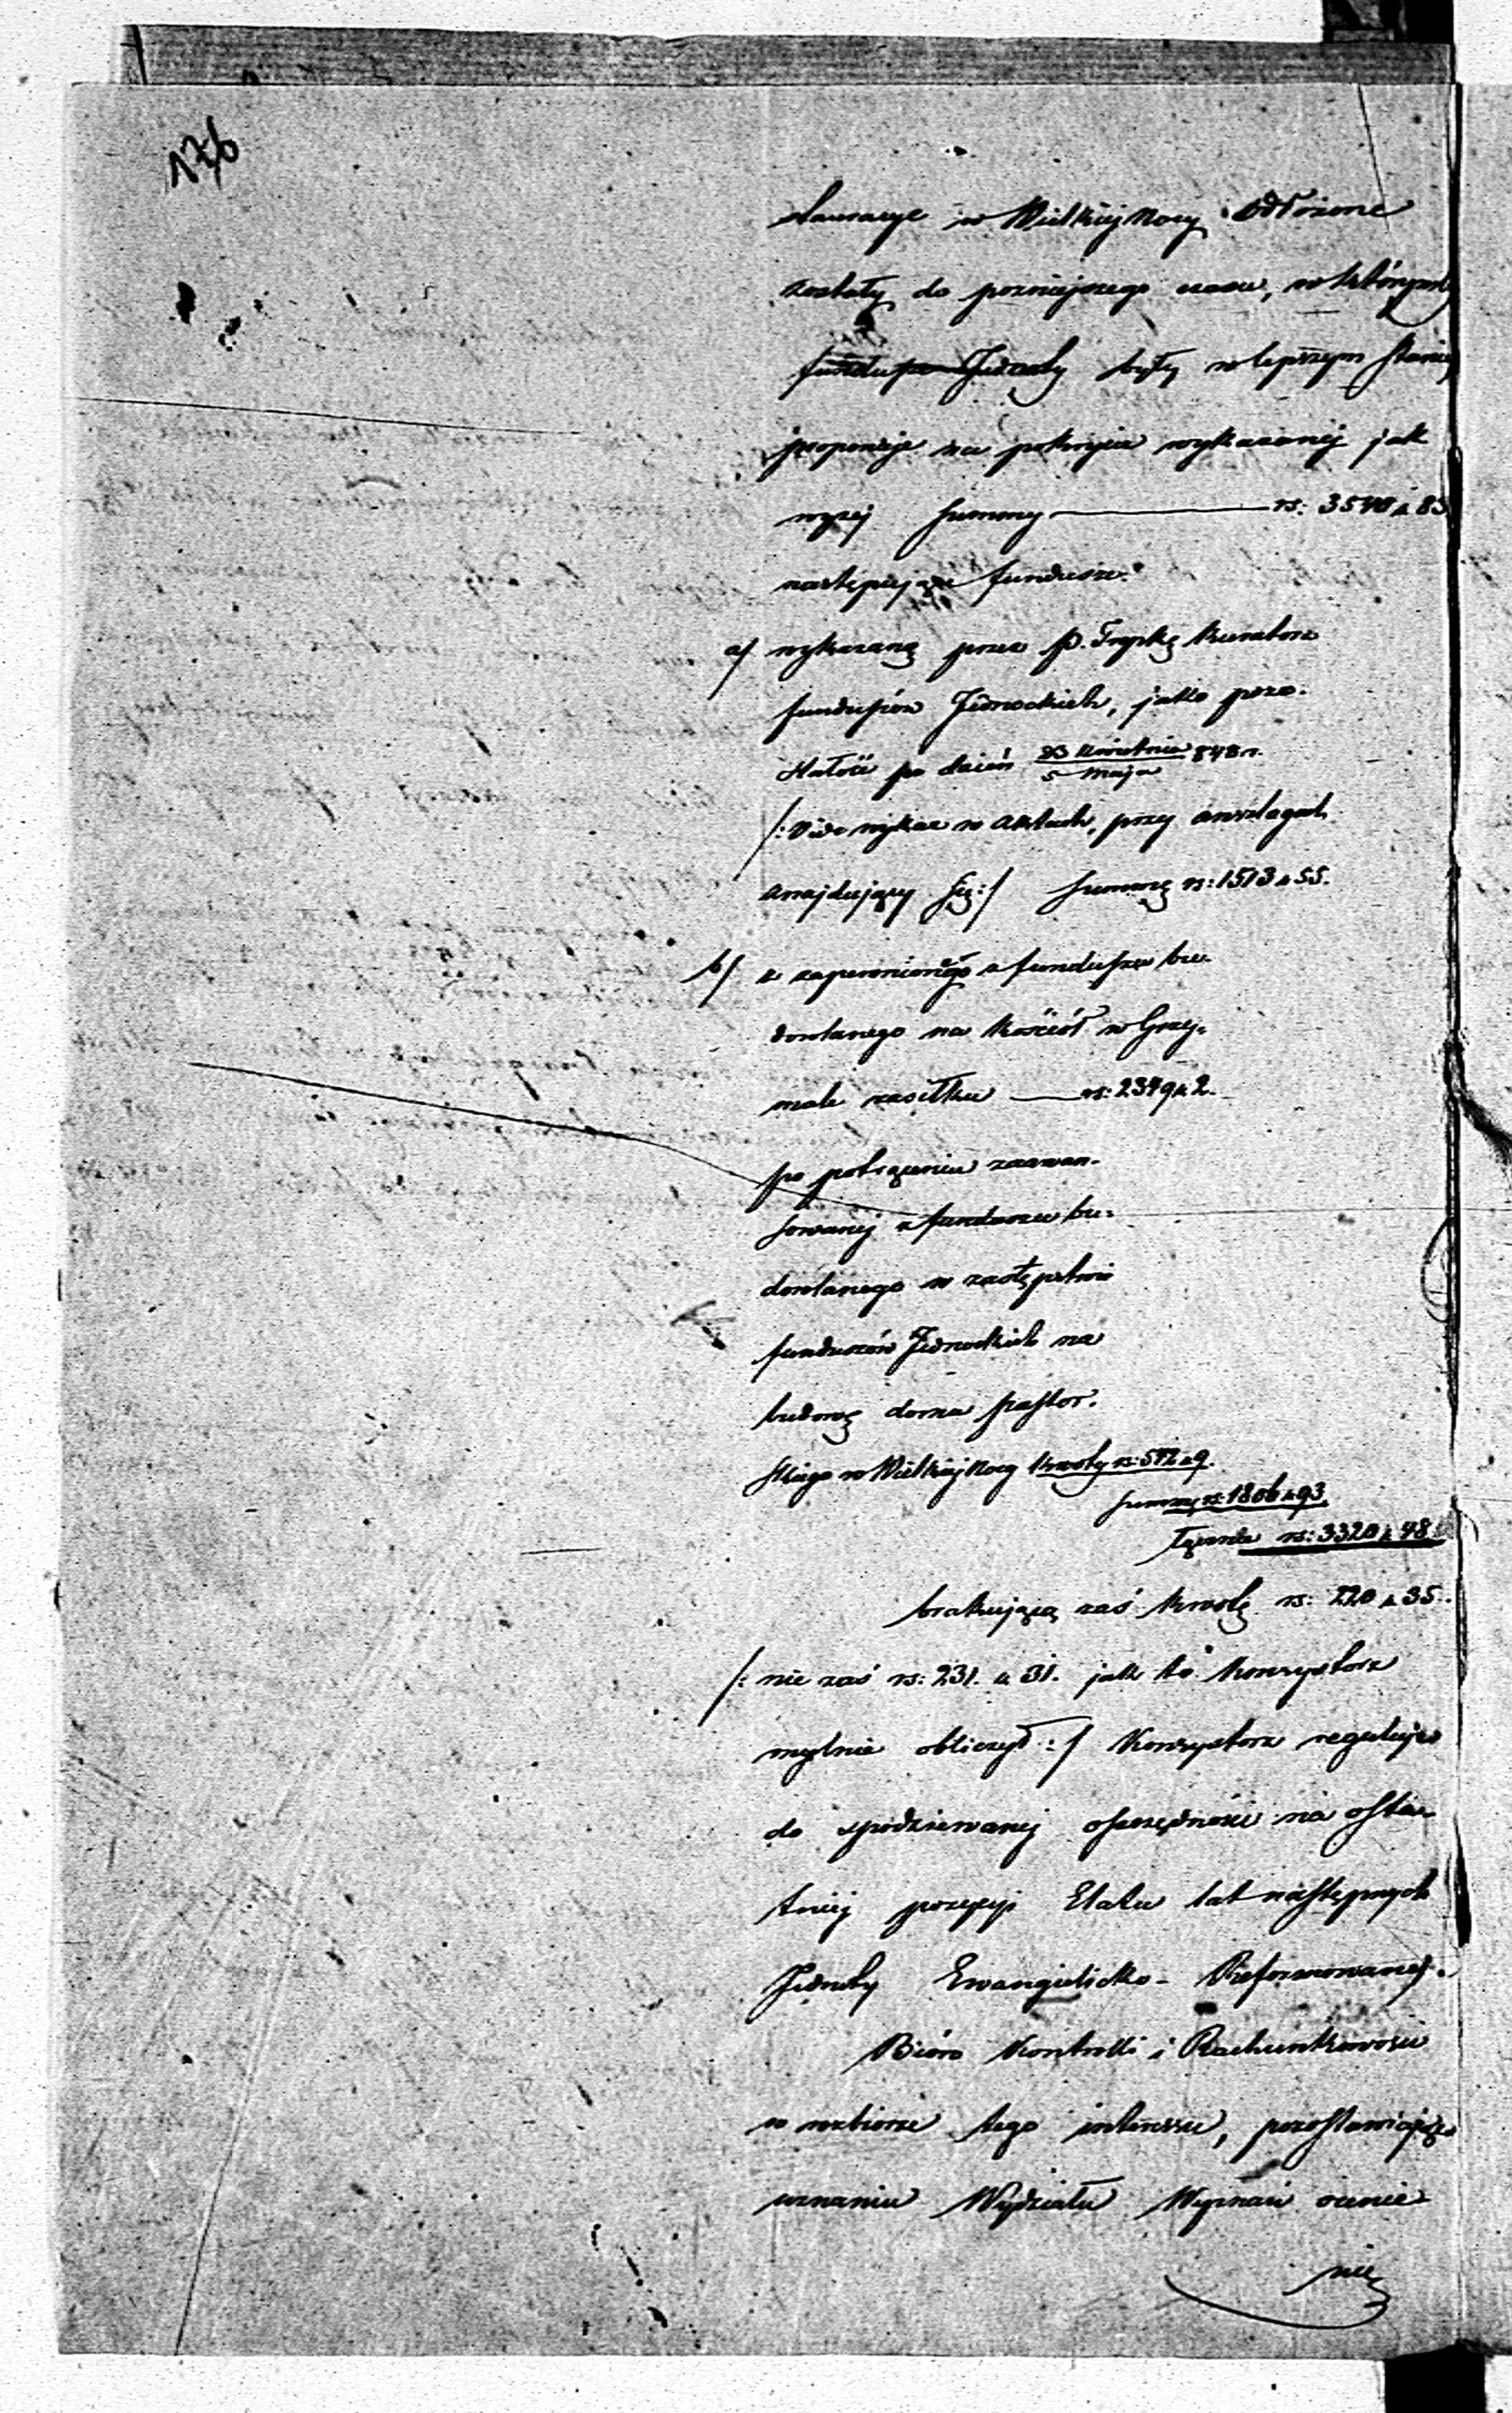 176
stauracye w Wielkiej Nocy odłożone
zostały do pozniejszego czasu, w którymby
fundusze Jednoty były w lepszym stanie,
proponuje na pokrycie wykazanej jak
wyżej Summy rs: 3540 k 83
następujące fundusze:
a/ wykazaną przez P. Trepkę Kuratora
funduszów Jednockich, jako pozo-
stałość po dzień 23 Kwietnia / 5 Maja 848 r.
/: vide wykaz w aktach, przy anszlagach
znajdujący się :/ Summę rs: 1513 k 55.
b/ z zapewnionego z funduszu bu-
dowlanego na Kościół w Grzy-
male zasiłku rs: 2349 k 2.
po potrąceniu zaawan-
sowanej z funduszu bu-
dowlanego w zastępstwie
funduszów Jednockich na
budowę domu pastor-
skiego w Wielkiej Nocy kwoty rs: 542 k 9.
Summę rs: 1806 k 93.
Łącznie rs: 3320 k 48.
brakującą zaś kwotę rs: 220 k 35.
/: nie zaś rs: 231. k 31. jak to Konsystorz
mylnie obliczył :/ Konsystorz reguluje
do spodziewanej oszczędności na osta-
tniej pozycyi Etatu lat następnych
Jednoty Ewangielicko-Reformowanej.
Biuro Kontrolli i Rachunkowości
w rozbiorze tego interessu, pozostawiając
uznaniu Wydziału Wyznań ocenie-
nie